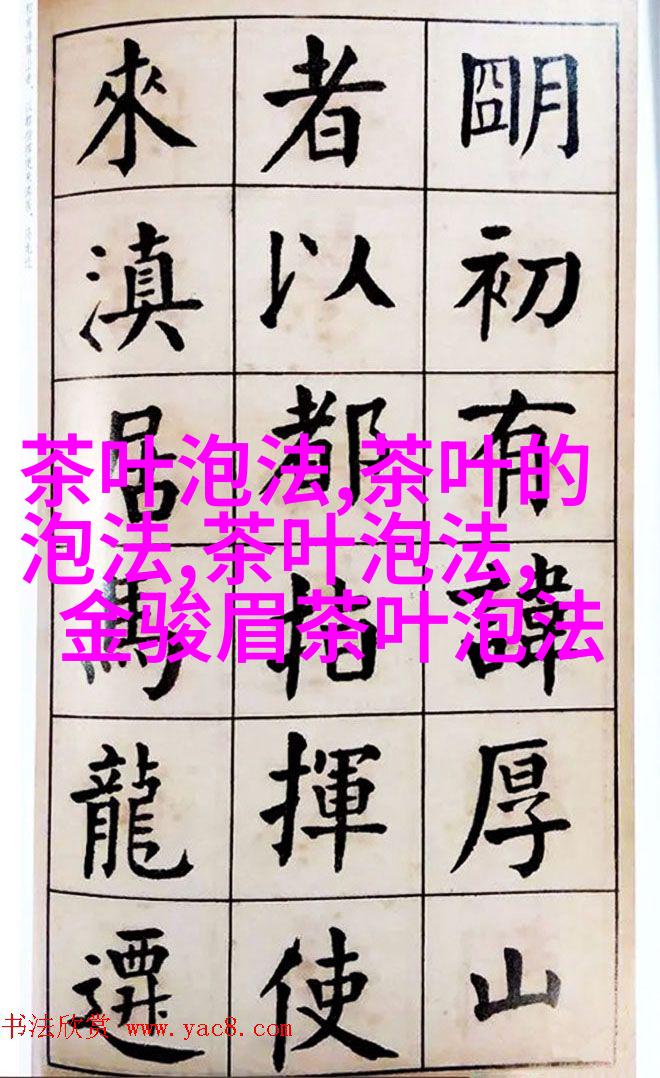 朙初有諱厚山
者以都指揮使
來滇居馬龍遷
茶叶泡法,茶叶的
泡法,茶叶泡法,
金骏眉茶叶泡法
书法欣赏 www.yac8.com